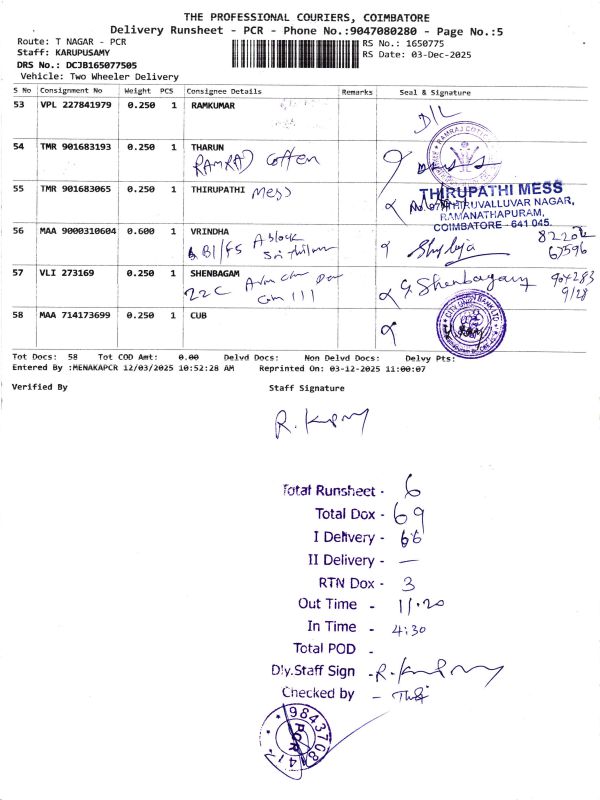 THE PROFESSIONAL COURIERS, COIMBATORE
Delivery Runsheet - PCR - Phone No.:9047080280 - Page No.:5
Route: T NAGAR - PCR
Staff: KARUPUSAMY
DRS No.: DCJB165077505
Vehicle: Two Wheeler Delivery
RS No.: 1650775
RS Date: 03-Dec-2025
S No Consignment No Weight PCS Consignee Details Remarks Seal & Signature
53 VPL 227841979 0.250 1 RAMKUMAR
D/L
54 TMR 901683193 0.250 1 THARUN
RAMRAJ Cotton
55 TMR 901683065 0.250 1 THIRUPATHI Mess
THIRUPATHI MESS
THIRUVALLUVAR NAGAR,
RAMANATHAPURAM,
COIMBATORE - 641 045.
56 MAA 9000310604 0.600 1 VRINDHA
B1/F5 A block
57 VLI 273169 0.250 1 SHENBAGAM
22C
G. Shenbagam
58 MAA 714173699 0.250 1 CUB
CITY UNION BANK LTD
Tot Docs: 58 Tot COD Amt: 0.00 Delvd Docs: Non Delvd Docs: Delvy Pts:
Entered By :MENAKAPCR 12/03/2025 10:52:28 AM Reprinted On: 03-12-2025 11:00:07
Verified By Staff Signature
Total Runsheet - 6
Total Dox - 69
I Delivery - 66
II Delivery - —
RTN Dox - 3
Out Time - 11.20
In Time - 4:30
Total POD -
Dly.Staff Sign -
Checked by -
PCR